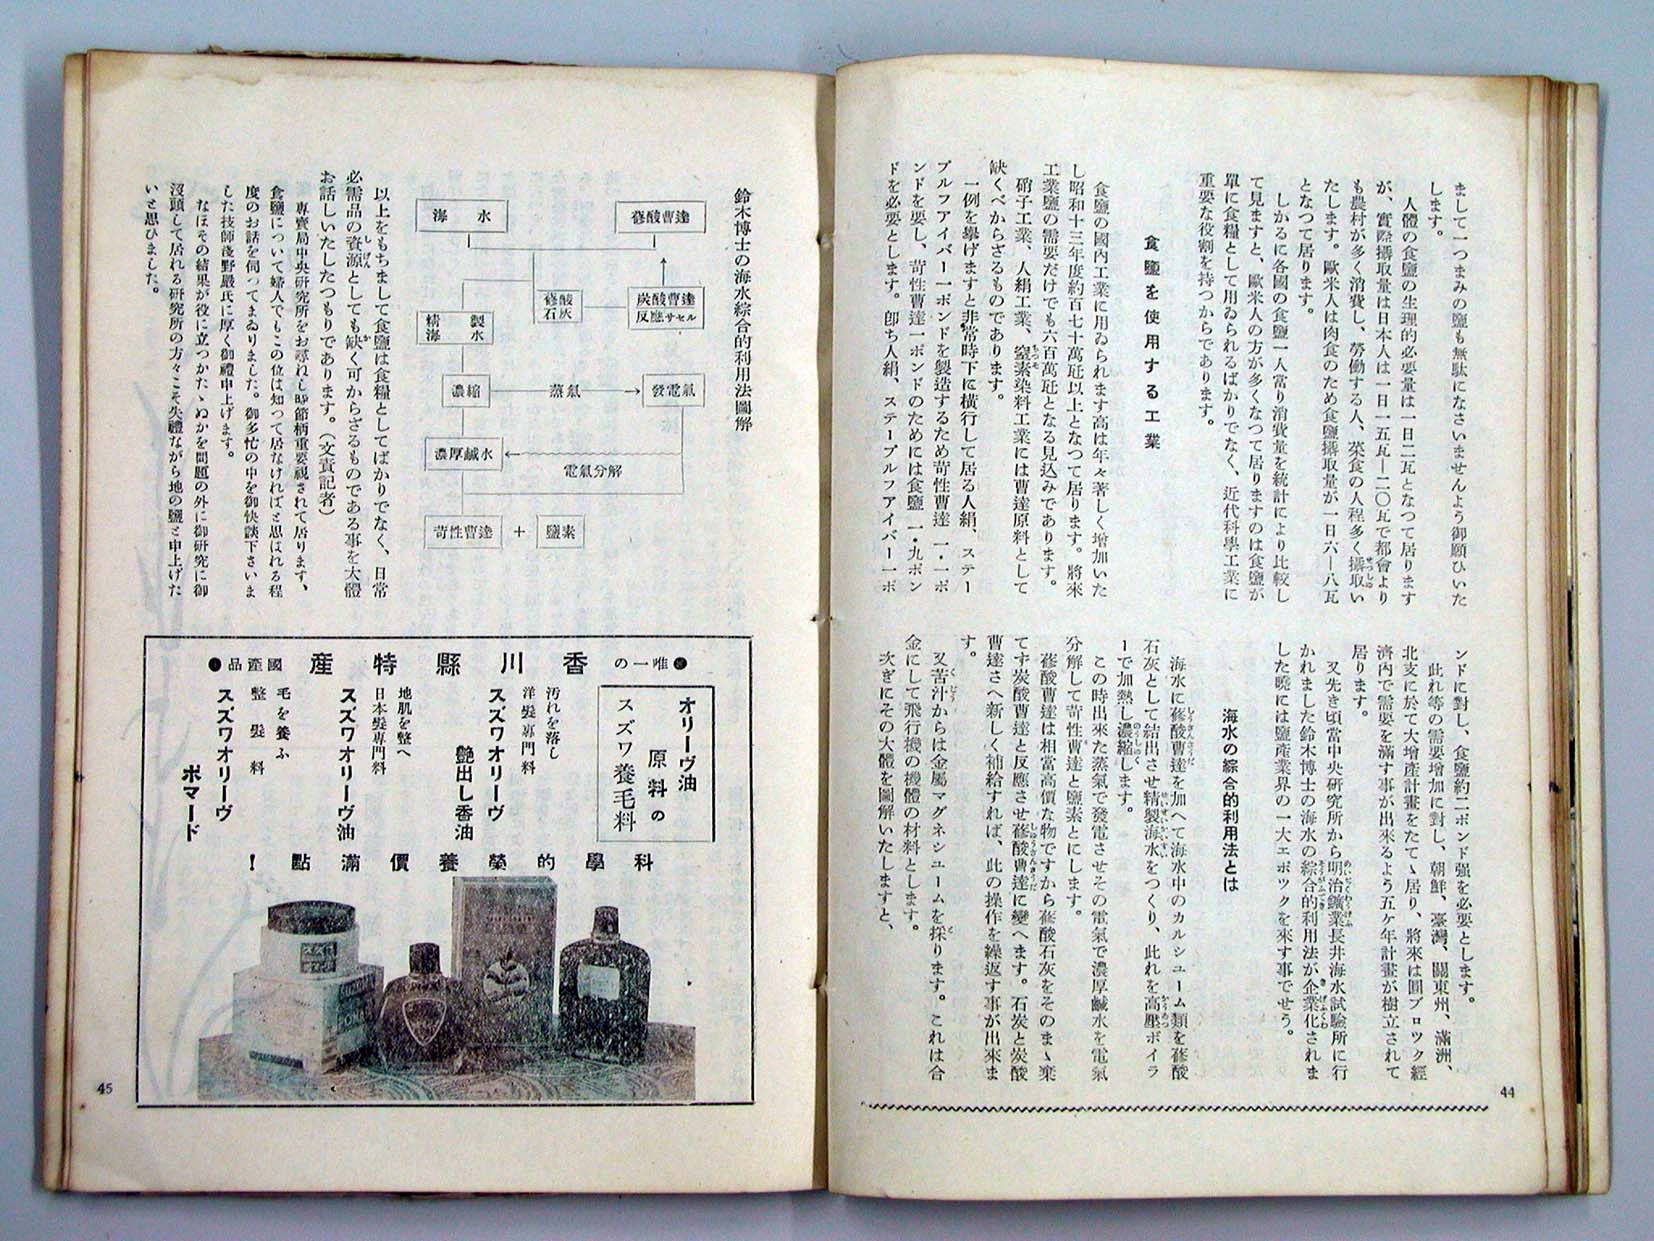 まして一つまみの鹽も無駄になさいませんよう御願ひいた
します。
人體の食鹽の生理的必要量は一日二瓦となつて居ります
が、實際攝取量は日本人は一日一五瓦—二〇瓦で都會より
も農村が多く消費し、勞働する人、菜食の人程多く攝取い
たします。歐米人は肉食のため食鹽攝取量が一日六—八瓦
となつて居ります。
しかるに各國の食鹽一人當り消費量を統計により比較し
て見ますと、歐米人の方が多くなつて居りますのは食鹽が
單に食糧として用ゐられるばかりでなく、近代科學工業に
重要な役割を持つからであります。
食鹽を使用する工業
食鹽の國內工業に用ゐられます高は年々著しく增加いた
し昭和十三年度約百七十萬瓩以上となつて居ります。將來
工業鹽の需要だけでも六百萬瓩となる見込みであります。
硝子工業、人絹工業、窒素染料工業には曹達原料として
缺くべからざるものであります。
一例を擧げますと非常時下に橫行して居る人絹、ステー
プルフアイバー一ポンドを製造するため苛性曹達一・一ポ
ンドを要し、苛性曹達一ポンドのためには食鹽一・九ポン
ドを必要とします。卽ち人絹、ステープルフアイバー一ポ
ンドに對し、食鹽約二ポンド强を必要とします。
此れ等の需要增加に對し、朝鮮、臺灣、關東州、滿洲、
北支に於て大增產計畫をたてゝ居り、將來は圓ブロツク經
濟內で需要を滿す事が出來るよう五ケ年計畫が樹立されて
居ります。
又先き頃當中央研究所から明治鑛業長井海水試驗所に行
かれました鈴木博士の海水の綜合的利用法が企業化されま
した曉には鹽產業界の一大エポツクを來す事でせう。
海水の綜合的利用法とは
海水に蓚酸曹達を加へて海水中のカルシユーム類を蓚酸
石灰として結出させ精製海水をつくり、此れを高壓ボイラ
ーで加熱し濃縮します。
この時出來た蒸氣で發電させその電氣で濃厚鹹水を電氣
分解して苛性曹達と鹽素とにします。
蓚酸曹達は相當高價な物ですから蓚酸石灰をそのまゝ棄
てず炭酸曹達と反應させ蓚酸曹達に變へます。石灰と炭酸
曹達さへ新しく補給すれば、此の操作を繰返す事が出來ま
す。
又苦汁からは金屬マグネシユームを採ります。これは合
金にして飛行機の機體の材料とします。
次ぎにその大體を圖解いたしますと、
44
鈴木博士の海水綜合的利用法圖解
海水
蓚酸曹達
蓚酸石灰
炭酸曹達反應サセル
精製海水
濃縮
蒸氣
發電氣
濃厚鹹水
電氣分解
苛性曹達 + 鹽素
以上をもちまして食鹽は食糧としてばかりでなく、日常
必需品の資源としても缺く可からざるものである事を大體
お話しいたしたつもりであります。(文責記者)
專賣局中央研究所をお尋ねし時節柄重要視されて居ります、
食鹽について婦人でもこの位は知つて居なければと思はれる程
度のお話を伺つてまゐりました。御多忙の中を御快談下さいま
した技師淺野嚴氏に厚く御禮申上げます。
なほその結果が役に立つかたゝぬかを問題の外に御硏究に御
沒頭して居れる硏究所の方々こそ失禮ながら地の鹽と申上げた
いと思ひました。
●唯一の香川縣特產國產品●
オリーヴ油
原料の
スズワ養毛料
汚れを落し
洋髮專門料
スズワオリーヴ
艷出し香油
地肌を整へ
日本髮專門料
スズワオリーヴ油
毛を養ふ
整髮料
スズワオリーヴ
ポマード
科學的榮養價滿點!
45